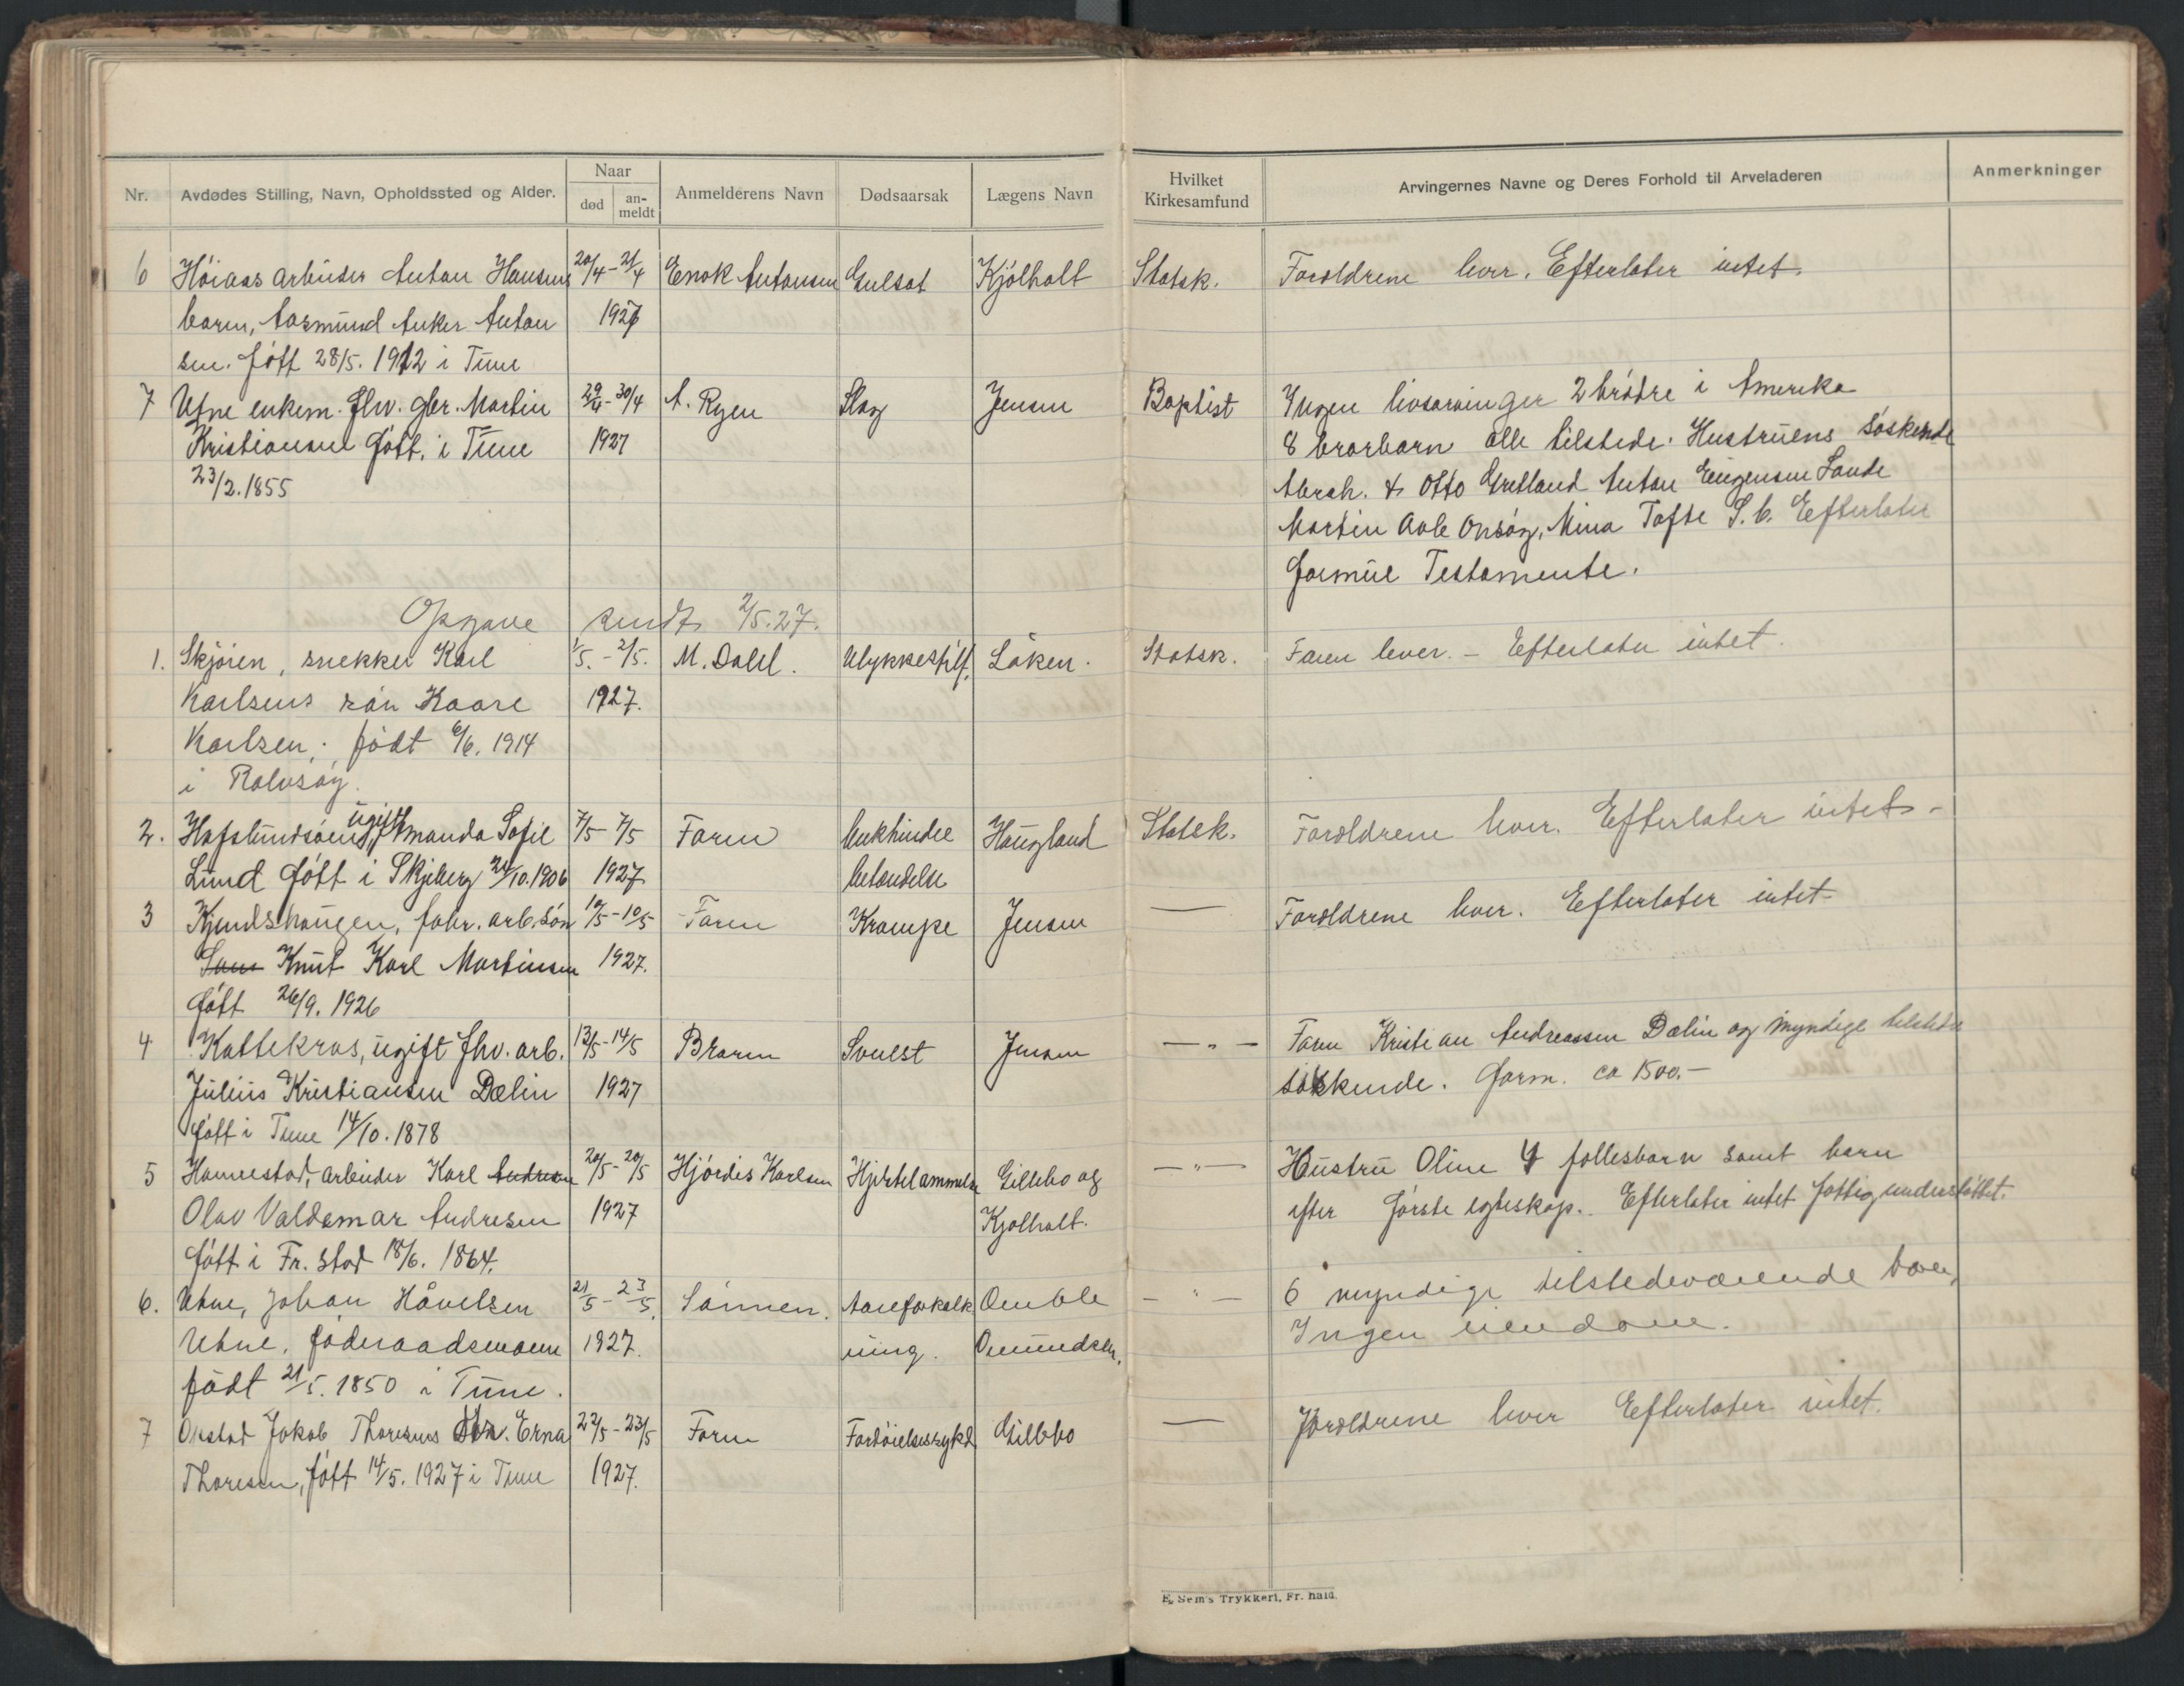 Nr. Avdødes Stilling, Navn, Opholdssted og Alder. Naar død an-meldt Anmelderens Navn Dødsaarsak Lægens Navn Hvilket Kirkesamfund Arvingernes Navne og Deres Forhold til Arveladeren Anmerkninger
6 Höiaas arbeider Anton Hansens 20/4 - 21/4 Enok Antonsen Gulsot Kjölholt Statsk. Foreldrene lever. Efterlater intet.
barn, Aasmund Anker Anton 1927
sen. född 28/5. 1912 i Tune
7 Utne enkem. fhv. gbr. Martin 29/4 - 30/4 A. Ryen Slag Jensen Baptist Ingen livsarvinger 2 brödre i Amerika
Kristiansen född. i Tune 1927 8 brorbarn alle tilstede. Hustruens söskende
23/2. 1855 Abrah. & Otto Gretland Anton Eugensen Sande
Martin Aale Onsöy, Mina Tofte S.b. Efterlater
formue Testamente.
Opgave sendt 2/5.27.
1. Skjören, snekker Karl 1/5. - 2/5. M. Dahl. Ulykkestilf. Låken. Statsk. Faren lever. - Efterlater intet.
Karlsens sön Kaare 1927.
Karlsen, födt 6/6. 1914
i Rolvsöy.
2. Hafslundsöens, ugift Amanda Sofie 7/5 - 7/5 Faren Bukhinde Haugland Statsk. Foreldrene lever. Efterlater intet -
Lund föдt i Skjeberg 24/10. 1906 1927 betendelse
3 Kjendshaugen, fabr. arb. sön 10/5 - 10/5 Faren Krampe Jensen — Foreldrene lever. Efterlater intet
Knut Karl Martinsen 1927.
född 26/9. 1926
4 Kattekras, ugift fhv. arb. 13/5 - 14/5 Broren Svulst Jensen — " — Faren Kristian Andreassen Dælin og myndige tilstede
Julius Kristiansen Dælin 1927 söskende. Form. ca 1500.-
född i Tune 14/10. 1878
5 Hannestad, arbeider Karl Andresen 20/5 - 20/5 Hjördis Karlsen Hjertelammelse Gillebo og — " — Hustru Oline 4 fellesbarn samt barn
Olav Valdemar Andresen 1927 Kjölholt. efter förste egteskap. Efterlater intet fattigunderstöttet.
född i Fr. stad 18/6. 1864.
6. Utne, Johan Håvelsen 21/5 - 23/5. Sönnen. Aareforkalk Ole — " — 6 myndige tilstedeværende barn,
Utne, föderaadsmann 1927. ning. Omundsen. Ingen eiendom.
födt 21/5. 1850 i Tune.
7 Jakob Thoresens dtr. Erna 22/5 - 23/5 Faren Fordöielsessykd Gillebo — Foreldrene lever Efterlater intet.
Thoresen, född 14/5. 1927 i Tune 1927.
E. Sem's Trykkeri, Fr. hald.